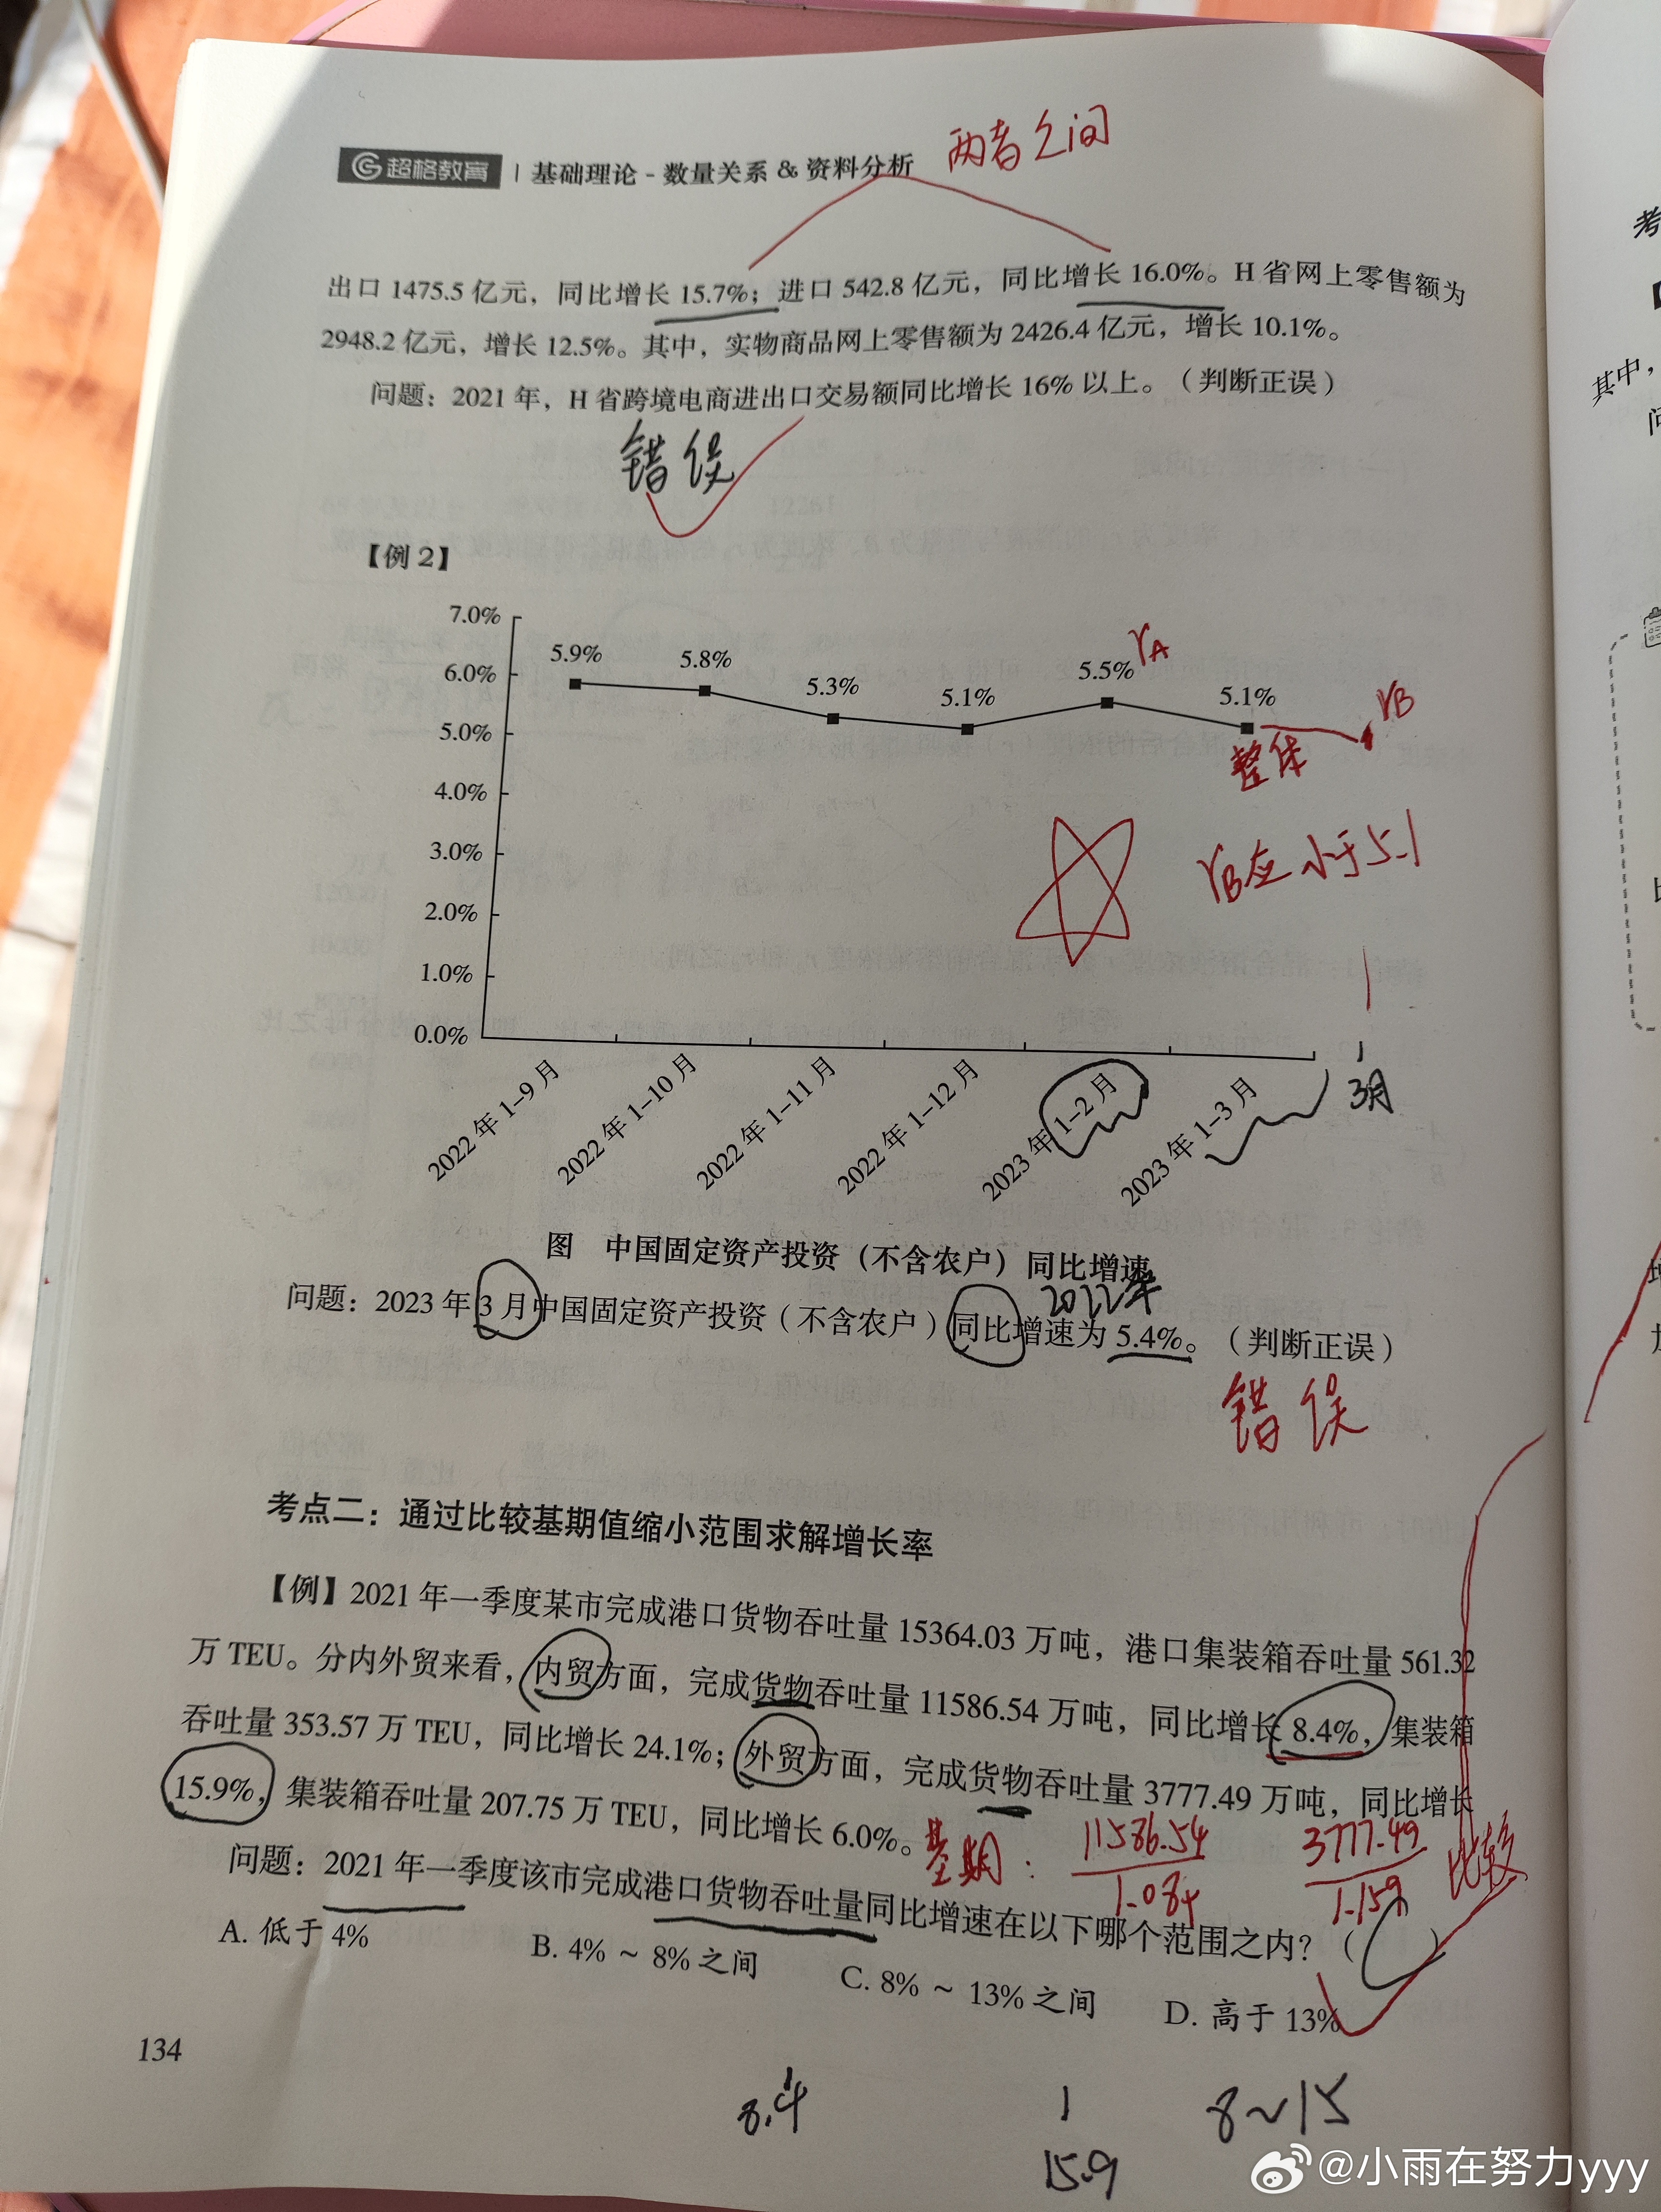 超格教育 | 基础理论 - 数量关系 & 资料分析 两者之间
出口 1475.5 亿元，同比增长 15.7%；进口 542.8 亿元，同比增长 16.0%。H 省网上零售额为
2948.2 亿元，增长 12.5%。其中，实物商品网上零售额为 2426.4 亿元，增长 10.1%。
问题：2021 年，H 省跨境电商进出口交易额同比增长 16% 以上。（判断正误）
错误
【例 2】
7.0%
6.0%
5.0%
4.0%
3.0%
2.0%
1.0%
0.0%
5.9%
5.8%
5.3%
5.1%
5.5%
rA
5.1%
rB
整体
rB应小于5.1
2022 年 1–9 月
2022 年 1–10 月
2022 年 1–11 月
2022 年 1–12 月
2023 年 1–2 月
2023 年 1–3 月
3月
图 中国固定资产投资（不含农户）同比增速
2022年
问题：2023 年 3 月中国固定资产投资（不含农户）同比增速为 5.4%。（判断正误）
错误
考点二：通过比较基期值缩小范围求解增长率
【例】2021 年一季度某市完成港口货物吞吐量 15364.03 万吨，港口集装箱吞吐量 561.32
万 TEU。分内外贸来看，内贸方面，完成货物吞吐量 11586.54 万吨，同比增长 8.4%，集装箱
吞吐量 353.57 万 TEU，同比增长 24.1%；外贸方面，完成货物吞吐量 3777.49 万吨，同比增长
15.9%，集装箱吞吐量 207.75 万 TEU，同比增长 6.0%。
基期：11586.54 3777.49 比较
1.084 1.159
问题：2021 年一季度该市完成港口货物吞吐量同比增速在以下哪个范围之内？（C）
A. 低于 4%
B. 4% ~ 8% 之间
C. 8% ~ 13% 之间
D. 高于 13%
134
8.4
15.9
8~15
@小雨在努力yyy
考
其中，